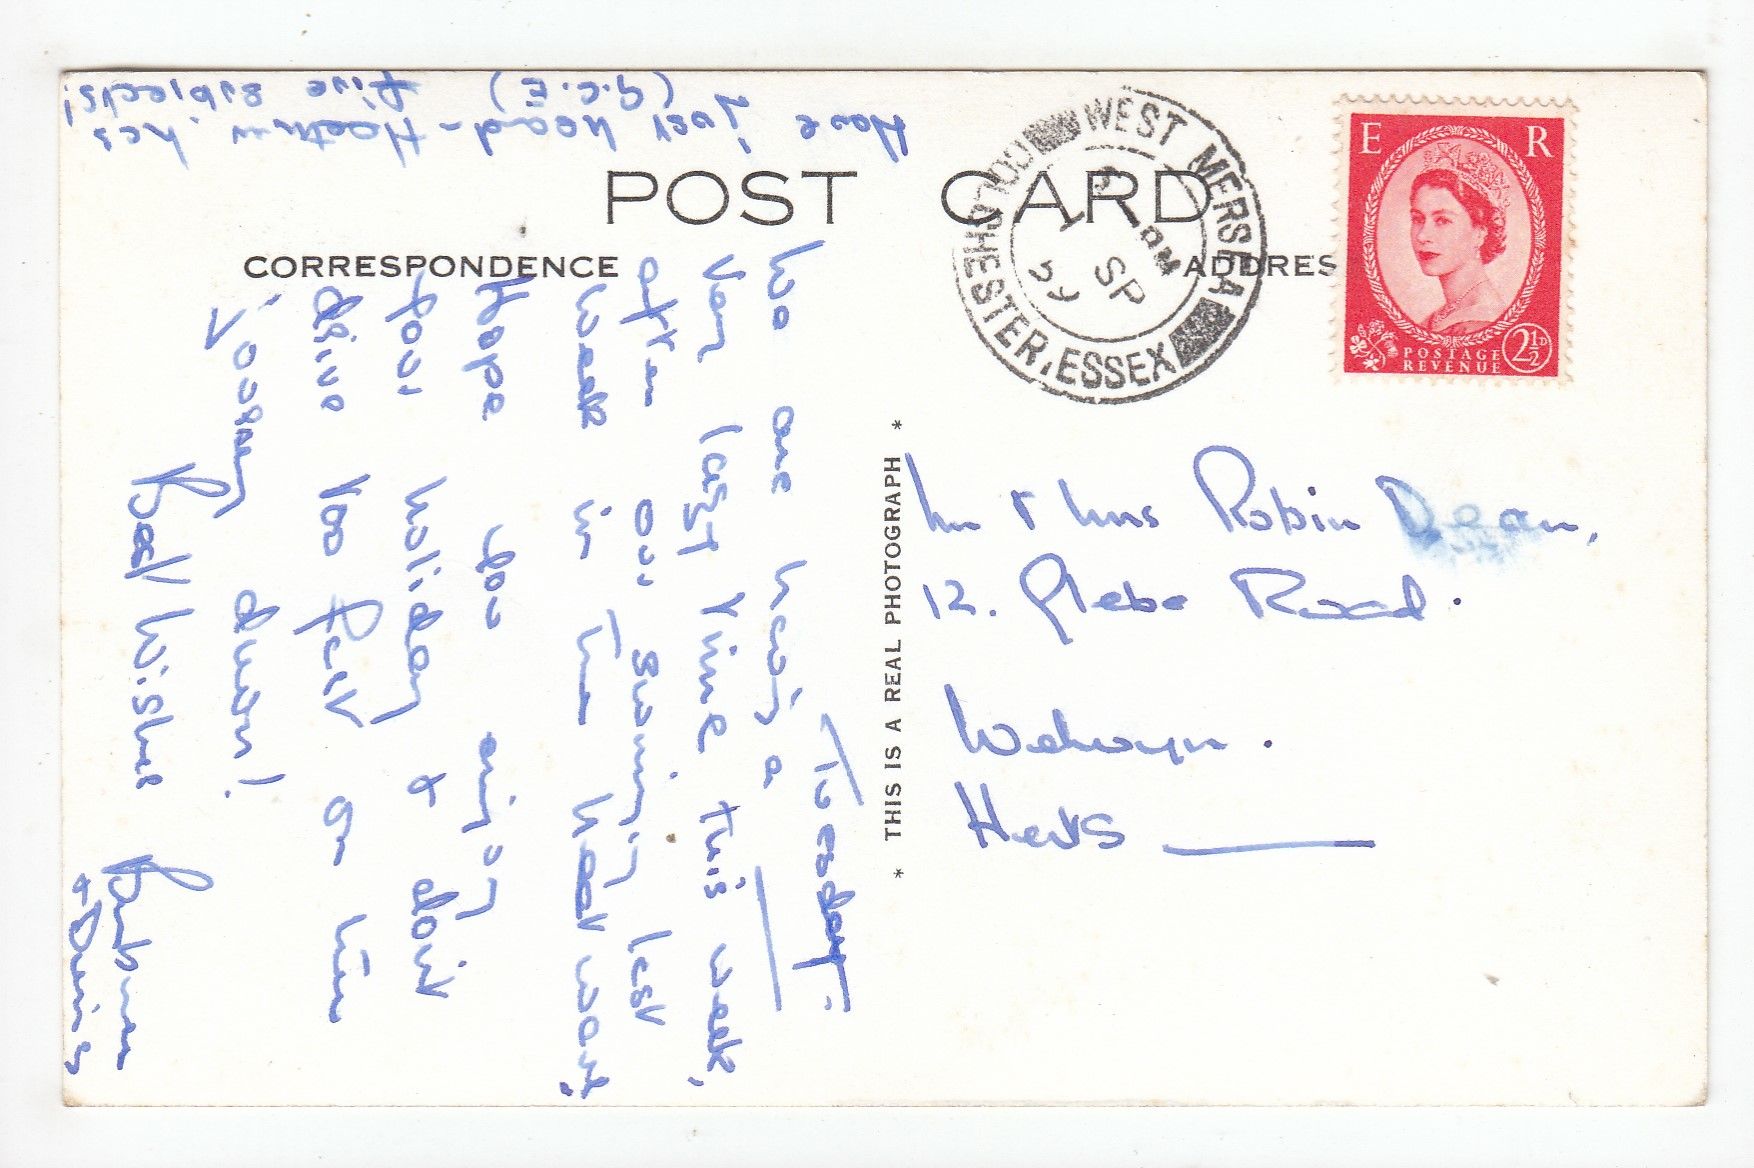 POST CARD
CORRESPONDENCE
ADDRES
WEST MERSEA
COLCHESTER, ESSEX
6 - PM
1 SP
59
E R
POSTAGE
REVENUE
2½D
* THIS IS A REAL PHOTOGRAPH *
Mr & Mrs Robin Dean,
12. Glebe Road.
Welwyn.
Herts
Tuesday.
We are having a
very lazy time this week,
after our swimming last
week in the heat wave,
Hope you enjoy
your holiday & don't
drive too fast on the
journey down!
Best Wishes
Barbara
+ Dennis
Have just heard - has
(G.C.E) five subjects!